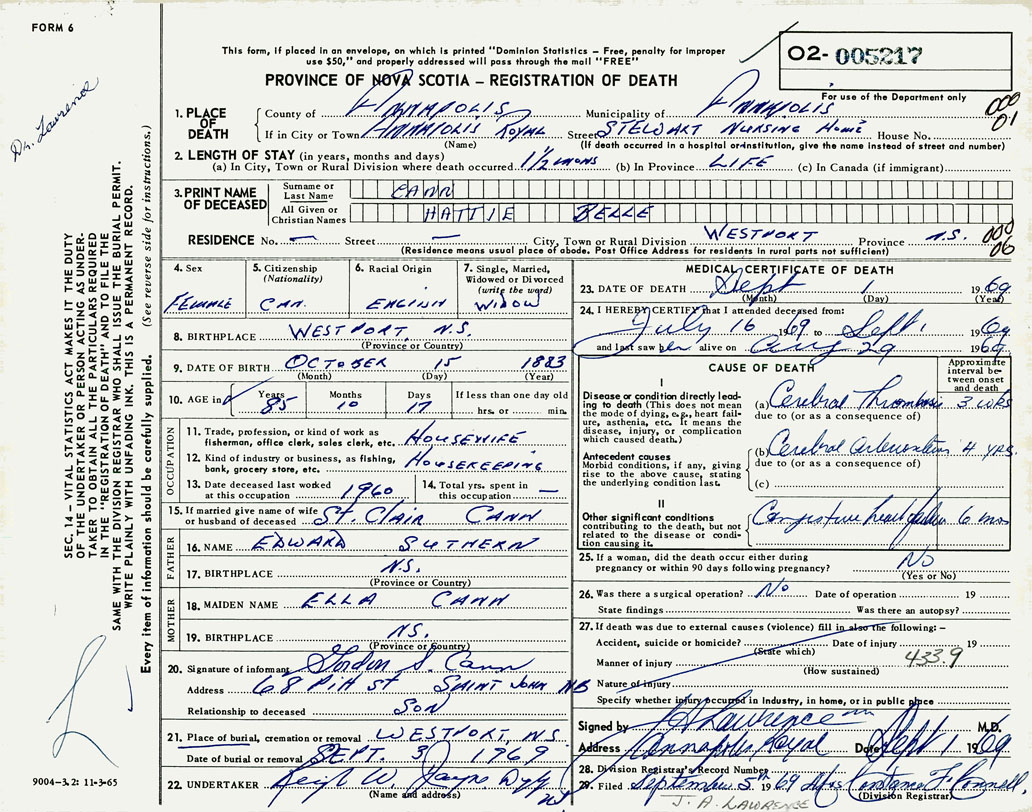 FORM 6
This form, if placed in an envelope, on which is printed "Dominion Statistics – Free, penalty for improper
use $50," and properly addressed will pass through the mail "FREE"
O2- 005217
PROVINCE OF NOVA SCOTIA – REGISTRATION OF DEATH
For use of the Department only
Dr. Lawrence
1. PLACE OF DEATH
County of ANNAPOLIS Municipality of ANNAPOLIS
000
01
If in City or Town ANNAPOLIS ROYAL Street STEWART NURSING HOME House No.
(Name) (If death occurred in a hospital or institution, give the name instead of street and number)
2. LENGTH OF STAY (in years, months and days)
(a) In City, Town or Rural Division where death occurred 1 1/2 mons (b) In Province LIFE (c) In Canada (if immigrant)
3. PRINT NAME OF DECEASED
Surname or Last Name CANN
All Given or Christian Names HATTIE BELLE
RESIDENCE No. — Street — City, Town or Rural Division WESTPORT Province N.S.
000
06
(Residence means usual place of abode. Post Office Address for residents in rural parts not sufficient)
SEC. 14 – VITAL STATISTICS ACT MAKES IT THE DUTY
OF THE UNDERTAKER OR PERSON ACTING AS UNDER-
TAKER TO OBTAIN ALL THE PARTICULARS REQUIRED
IN THE "REGISTRATION OF DEATH" AND TO FILE THE
SAME WITH THE DIVISION REGISTRAR WHO SHALL ISSUE THE BURIAL PERMIT.
WRITE PLAINLY WITH UNFADING INK. THIS IS A PERMANENT RECORD.
Every item of information should be carefully supplied. (See reverse side for instructions.)
4. Sex
FEMALE
5. Citizenship
(Nationality)
CAN.
6. Racial Origin
ENGLISH
7. Single, Married,
Widowed or Divorced
(write the word)
WIDOW
8. BIRTHPLACE WESTPORT N.S.
(Province or Country)
9. DATE OF BIRTH OCTOBER 15 1883
(Month) (Day) (Year)
10. AGE in Years Months Days If less than one day old
85 10 17 hrs. or min.
OCCUPATION
11. Trade, profession, or kind of work as
fisherman, office clerk, sales clerk, etc. HOUSEWIFE
12. Kind of industry or business, as fishing,
bank, grocery store, etc. HOUSEKEEPING
13. Date deceased last worked
at this occupation 1960
14. Total yrs. spent in
this occupation —
15. If married give name of wife
or husband of deceased St. Clair CANN
FATHER
16. NAME EDWARD SUTHERN
17. BIRTHPLACE N.S.
(Province or Country)
MOTHER
18. MAIDEN NAME ELLA CANN
19. BIRTHPLACE NS.
(Province or Country)
20. Signature of informant Gordon S. Cann
Address 68 Pitt St SAINT JOHN NB
Relationship to deceased SON
21. Place of burial, cremation or removal WESTPORT, N.S.
Date of burial or removal SEPT. 3 1969
22. UNDERTAKER W. Jayne Digby
(Name and address) NS
MEDICAL CERTIFICATE OF DEATH
23. DATE OF DEATH Sept 1 1969
(Month) (Day) (Year)
24. I HEREBY CERTIFY that I attended deceased from:
July 16 1969 to Sept 1 69
and last saw her alive on Aug 29 1969
CAUSE OF DEATH
Approximate
interval be-
tween onset
and death
I
Disease or condition directly lead-
ing to death (This does not mean
the mode of dying, e.g., heart fail-
ure, asthenia, etc. It means the
disease, injury, or complication
which caused death.)
(a) Cerebral Thrombosis 3 wks
due to (or as a consequence of)
Antecedent causes
Morbid conditions, if any, giving
rise to the above cause, stating
the underlying condition last.
(b) Cerebral 4 yrs.
due to (or as a consequence of)
(c)
II
Other significant conditions
contributing to the death, but not
related to the disease or condi-
tion causing it.
Congestive heart failure 6 mos
25. If a woman, did the death occur either during
pregnancy or within 90 days following pregnancy? No
(Yes or No)
26. Was there a surgical operation? No Date of operation 19
State findings Was there an autopsy?
27. If death was due to external causes (violence) fill in also the following: –
Accident, suicide or homicide? Date of injury 19
(State which)
433.9
Manner of injury
(How sustained)
Nature of injury
Specify whether injury occurred in Industry, in home, or in public place
Signed by Lawrence M.D.
Address Annapolis Royal Date Sept 1 1969
28. Division Registrar's Record Number
29. Filed September 5th 1969 Mrs Constance F.
(Division Registrar)
J. A. LAWRENCE
9004–3.2: 11-3-65